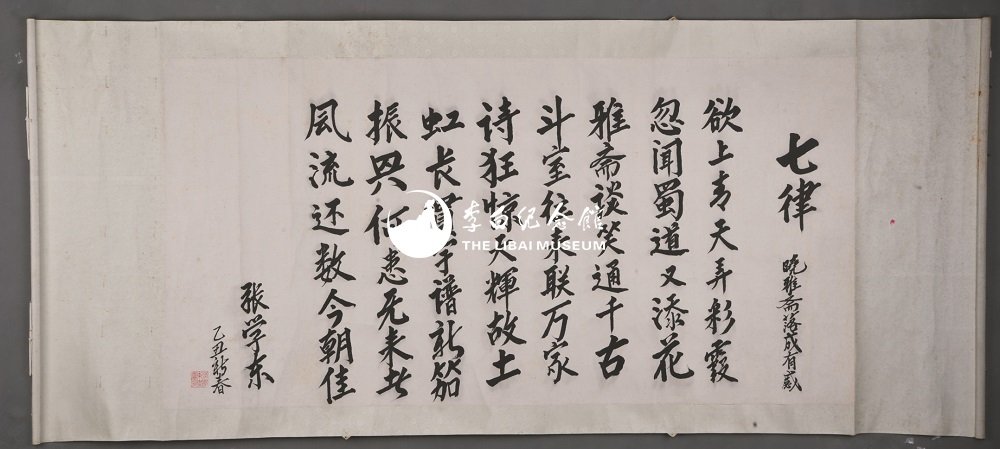 七律
晚雅斋落成有感
欲上青天弄彩霞
忽闻蜀道又添花
雅斋谈笑通千古
斗室往来联万家
诗狂惊天辉故土
虹长贯宇谱新笳
振兴何患无来者
风流还数今朝佳
张学东
乙丑新春
李白纪念馆
THE LIBAI MUSEUM